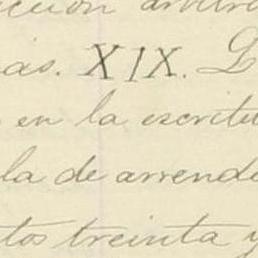 ción arbitra
as. XIX. L
en la escritu
la de arrenda
tos treinta y